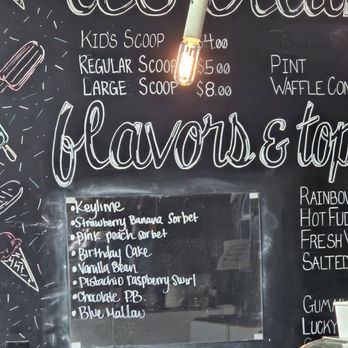 KID'S SCOOP $4.00
REGULAR SCOOP $5.00
LARGE SCOOP $8.00
PINT
WAFFLE CON
flavors & top
•Keylime
•Strawberry Banana Sorbet
•Pink peach sorbet
•Birthday Cake
•Vanilla Bean
•Pistachio raspberry swirl
•Chocolate P.B.
•Blue Mallow
RAINBOW
HOT FUD
FRESH
SALTED
GUMM
LUCKY